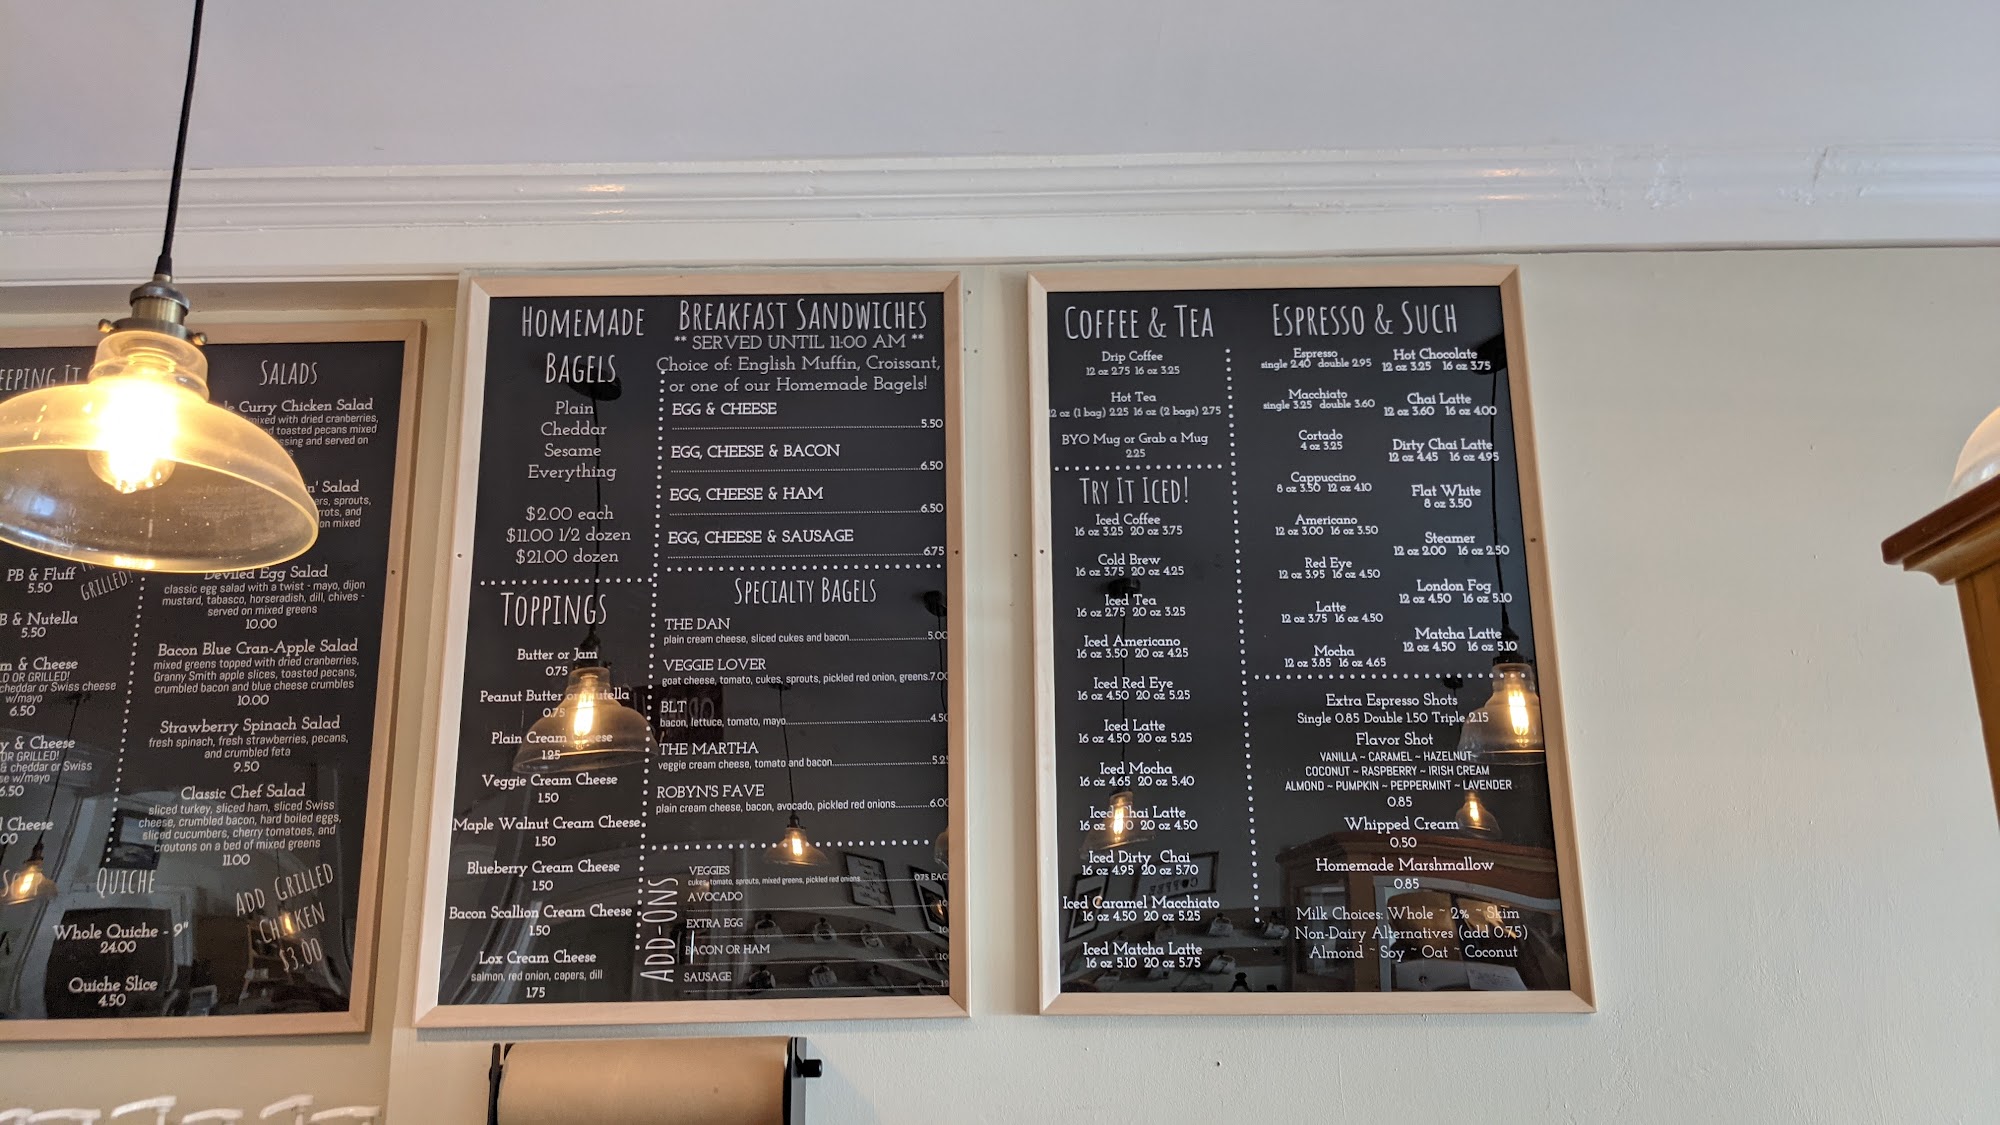 EEPING IT
PB & Fluff
5.50
B & Nutella
5.50
m & Cheese
D OR GRILLED!
cheddar or Swiss cheese
w/mayo
6.50
y & Cheese
OR GRILLED!
& cheddar or Swiss
se w/mayo
6.50
l Cheese
00
GRILLED!
SALADS
Curry Chicken Salad
mixed with dried cranberries,
toasted pecans mixed
and served on
n' Salad
sprouts,
and
on mixed
Deviled Egg Salad
classic egg salad with a twist - mayo, dijon
mustard, tabasco, horseradish, dill, chives -
served on mixed greens
10.00
Bacon Blue Cran-Apple Salad
mixed greens topped with dried cranberries,
Granny Smith apple slices, toasted pecans,
crumbled bacon and blue cheese crumbles
10.00
Strawberry Spinach Salad
fresh spinach, fresh strawberries, pecans,
and crumbled feta
9.50
Classic Chef Salad
sliced turkey, sliced ham, sliced Swiss
cheese, crumbled bacon, hard boiled eggs,
sliced cucumbers, cherry tomatoes, and
croutons on a bed of mixed greens
11.00
ADD GRILLED
CHICKEN
$3.00
SOUP
QUICHE
Whole Quiche - 9"
24.00
Quiche Slice
4.50
HOMEMADE
BAGELS
Plain
Cheddar
Sesame
Everything
$2.00 each
$11.00 1/2 dozen
$21.00 dozen
TOPPINGS
Butter or Jam
0.75
Peanut Butter or Nutella
0.75
Plain Cream Cheese
1.25
Veggie Cream Cheese
1.50
Maple Walnut Cream Cheese
1.50
Blueberry Cream Cheese
1.50
Bacon Scallion Cream Cheese
1.50
Lox Cream Cheese
salmon, red onion, capers, dill
1.75
BREAKFAST SANDWICHES
** SERVED UNTIL 11:00 AM **
Choice of: English Muffin, Croissant,
or one of our Homemade Bagels!
EGG & CHEESE
5.50
EGG, CHEESE & BACON
6.50
EGG, CHEESE & HAM
6.50
EGG, CHEESE & SAUSAGE
6.75
SPECIALTY BAGELS
THE DAN
plain cream cheese, sliced cukes and bacon 5.00
VEGGIE LOVER
goat cheese, tomato, cukes, sprouts, pickled red onion, greens 7.00
BLT
bacon, lettuce, tomato, mayo 4.50
THE MARTHA
veggie cream cheese, tomato and bacon 5.25
ROBYN'S FAVE
plain cream cheese, bacon, avocado, pickled red onions 6.00
ADD-ONS
VEGGIES
cukes, tomato, sprouts, mixed greens, pickled red onions 0.75 EAC
AVOCADO
EXTRA EGG
BACON OR HAM
SAUSAGE
COFFEE & TEA
Drip Coffee
12 oz 2.75 16 oz 3.25
Hot Tea
2 oz (1 bag) 2.25 16 oz (2 bags) 2.75
BYO Mug or Grab a Mug
2.25
TRY IT ICED!
Iced Coffee
16 oz 3.25 20 oz 3.75
Cold Brew
16 oz 3.75 20 oz 4.25
Iced Tea
16 oz 2.75 20 oz 3.25
Iced Americano
16 oz 3.50 20 oz 4.25
Iced Red Eye
16 oz 4.50 20 oz 5.25
Iced Latte
16 oz 4.50 20 oz 5.25
Iced Mocha
16 oz 4.65 20 oz 5.40
Iced Chai Latte
16 oz 20 oz 4.50
Iced Dirty Chai
16 oz 4.95 20 oz 5.70
Iced Caramel Macchiato
16 oz 4.50 20 oz 5.25
Iced Matcha Latte
16 oz 5.10 20 oz 5.75
ESPRESSO & SUCH
Espresso
single 2.40 double 2.95
Macchiato
single 3.25 double 3.60
Cortado
4 oz 3.25
Cappuccino
8 oz 3.50 12 oz 4.10
Americano
12 oz 3.00 16 oz 3.50
Red Eye
12 oz 3.95 16 oz 4.50
Latte
12 oz 3.75 16 oz 4.50
Mocha
12 oz 3.85 16 oz 4.65
Hot Chocolate
12 oz 3.25 16 oz 3.75
Chai Latte
12 oz 3.60 16 oz 4.00
Dirty Chai Latte
12 oz 4.45 16 oz 4.95
Flat White
8 oz 3.50
Steamer
12 oz 2.00 16 oz 2.50
London Fog
12 oz 4.50 16 oz 5.10
Matcha Latte
12 oz 4.50 16 oz 5.10
Extra Espresso Shots
Single 0.85 Double 1.50 Triple 2.15
Flavor Shot
VANILLA ~ CARAMEL ~ HAZELNUT
COCONUT ~ RASPBERRY ~ IRISH CREAM
ALMOND ~ PUMPKIN ~ PEPPERMINT ~ LAVENDER
0.85
Whipped Cream
0.50
Homemade Marshmallow
0.85
Milk Choices: Whole ~ 2% ~ Skim
Non-Dairy Alternatives (add 0.75)
Almond ~ Soy ~ Oat ~ Coconut